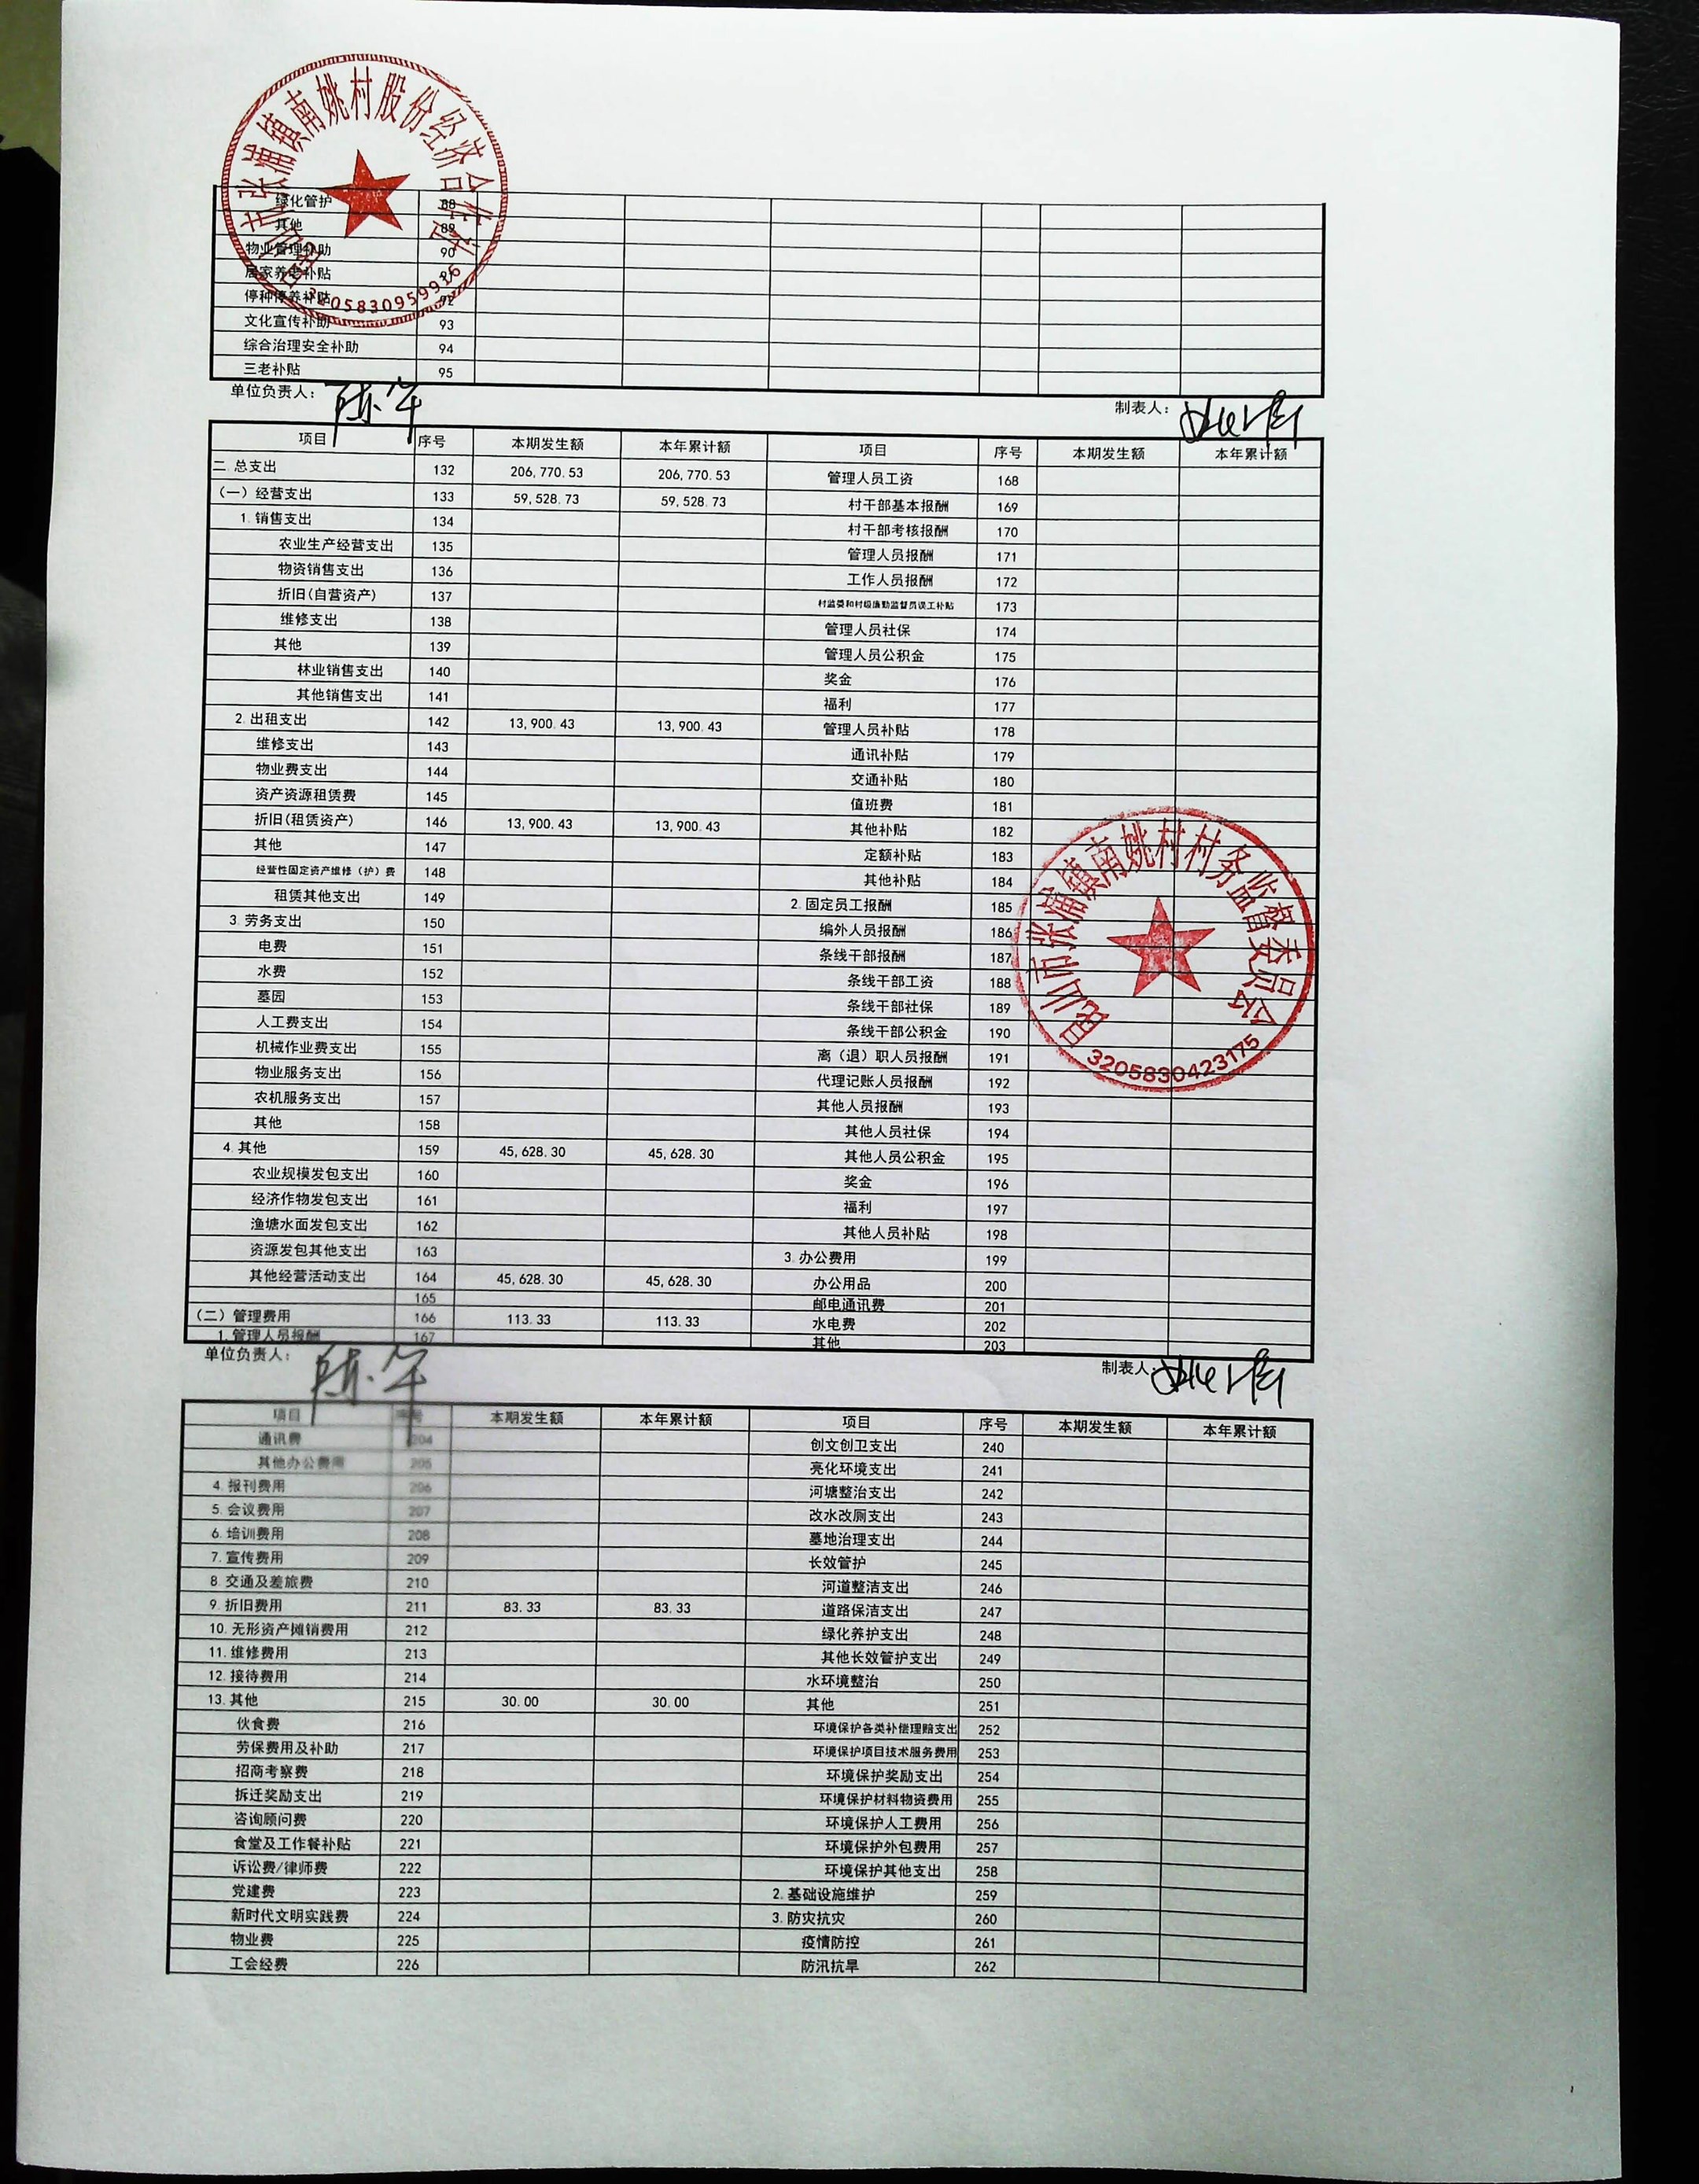 昆山市张浦镇南姚村股份经济合作社
3205830959916
绿化管护 88
其他 89
物业管理补助 90
居家养老补贴 91
停种停养补贴 92
文化宣传补助 93
综合治理安全补助 94
三老补贴 95
单位负责人： 制表人：
项目 序号 本期发生额 本年累计额 项目 序号 本期发生额 本年累计额
二.总支出 132 206,770.53 206,770.53 管理人员工资 168
（一）经营支出 133 59,528.73 59,528.73 村干部基本报酬 169
1.销售支出 134 村干部考核报酬 170
农业生产经营支出 135 管理人员报酬 171
物资销售支出 136 工作人员报酬 172
折旧(自营资产) 137 村监委和村级廉勤监督员误工补贴 173
维修支出 138 管理人员社保 174
其他 139 管理人员公积金 175
林业销售支出 140 奖金 176
其他销售支出 141 福利 177
2.出租支出 142 13,900.43 13,900.43 管理人员补贴 178
维修支出 143 通讯补贴 179
物业费支出 144 交通补贴 180
资产资源租赁费 145 值班费 181
折旧(租赁资产) 146 13,900.43 13,900.43 其他补贴 182
其他 147 定额补贴 183
经营性固定资产维修（护）费 148 其他补贴 184
租赁其他支出 149 2.固定员工报酬 185
3.劳务支出 150 编外人员报酬 186
电费 151 条线干部报酬 187
水费 152 条线干部工资 188
墓园 153 条线干部社保 189
人工费支出 154 条线干部公积金 190
机械作业费支出 155 离（退）职人员报酬 191
物业服务支出 156 代理记账人员报酬 192
农机服务支出 157 其他人员报酬 193
其他 158 其他人员社保 194
4.其他 159 45,628.30 45,628.30 其他人员公积金 195
农业规模发包支出 160 奖金 196
经济作物发包支出 161 福利 197
渔塘水面发包支出 162 其他人员补贴 198
资源发包其他支出 163 3.办公费用 199
其他经营活动支出 164 45,628.30 45,628.30 办公用品 200
165 邮电通讯费 201
（二）管理费用 166 113.33 113.33 水电费 202
1.管理人员报酬 167 其他 203
昆山市张浦镇南姚村村务监督委员会
3205830423175
单位负责人： 制表人：
项目 序号 本期发生额 本年累计额 项目 序号 本期发生额 本年累计额
通讯费 204 创文创卫支出 240
其他办公费用 205 亮化环境支出 241
4.报刊费用 206 河塘整治支出 242
5.会议费用 207 改水改厕支出 243
6.培训费用 208 墓地治理支出 244
7.宣传费用 209 长效管护 245
8.交通及差旅费 210 河道整洁支出 246
9.折旧费用 211 83.33 83.33 道路保洁支出 247
10.无形资产摊销费用 212 绿化养护支出 248
11.维修费用 213 其他长效管护支出 249
12.接待费用 214 水环境整治 250
13.其他 215 30.00 30.00 其他 251
伙食费 216 环境保护各类补偿理赔支出 252
劳保费用及补助 217 环境保护项目技术服务费用 253
招商考察费 218 环境保护奖励支出 254
拆迁奖励支出 219 环境保护材料物资费用 255
咨询顾问费 220 环境保护人工费用 256
食堂及工作餐补贴 221 环境保护外包费用 257
诉讼费/律师费 222 环境保护其他支出 258
党建费 223 2.基础设施维护 259
新时代文明实践费 224 3.防灾抗灾 260
物业费 225 疫情防控 261
工会经费 226 防汛抗旱 262